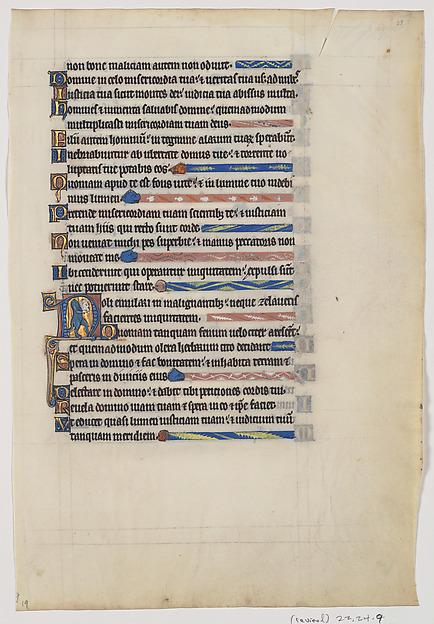 non bone maliciam autem non odivit.
Domine in celo misericordia tua: & veritas tua usq; ad nubes.
Iusticia tua sicut montes dei: iudicia tua abissus multa.
Homines & iumenta salvabis domine: quemadmodum
multiplicasti misericordiam tuam deus.
Filii autem hominum: in tegmine alarum tuarum sperabunt.
Inebriabuntur ab ubertate domus tue: & torrente vo
luptatis tue potabis eos.
Quoniam apud te est fons vite: & in lumine tuo videbi
mus lumen.
Pretende misericordiam tuam scientibus te: & iusticiam
tuam hiis qui recto sunt corde.
Non veniat michi pes superbie: & manus peccatoris non
moveat me.
Ibi ceciderunt qui operantur iniquitatem: expulsi sunt
nec potuerunt stare.
Noli emulari in malignantibus: neque zelaveris
facientes iniquitatem.
Quoniam tanquam fenum velociter arescent:
et quemadmodum olera herbarum cito decident.
Spera in domino & fac bonitatem: & inhabita terram &
pasceris in diviciis eius.
Delectare in domino: & dabit tibi peticiones cordis tui.
Revela domino viam tuam & spera in eo & ipse faciet.
Et educet quasi lumen iusticiam tuam: & iudicium tuum
tanquam meridiem.
19
22.24.9